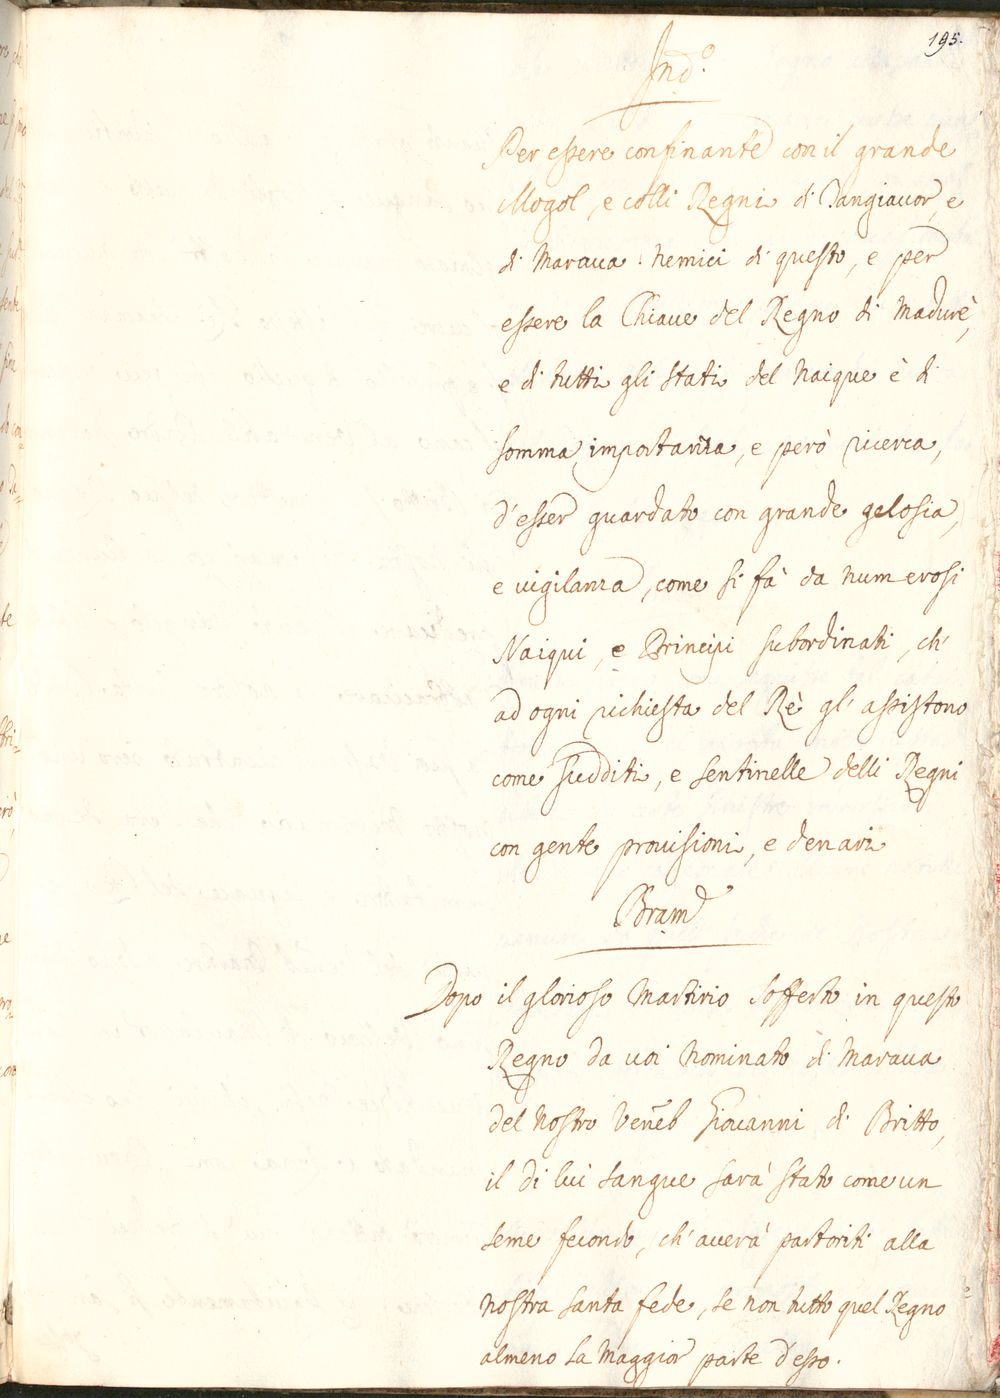 195.
Ind.º
Per essere confinante con il grande
Mogol, e colli Regni di Tangiauor, e
di Maraua nemici di questo, e per
essere la Chiaue del Regno di Madurè,
e di tutti gli stati del Naique è di
somma importanza, e però ricerca,
d'esser guardato con grande gelosia,
e vigilanza, come si fà da numerosi
Naiqui, e Principi subordinati, ch'
ad ogni richiesta del Rè gl'assistono
come sudditi, e sentinelle delli Regni
con gente prouisioni, e denari
Bram
Dopo il glorioso Martirio sofferto in questo
Regno da voi nominato di Maraua
del Nostro Veneb Giouanni di Britto,
il di lui sangue sarà stato come un
seme fecondo, ch'auerà partoriti alla
nostra santa fede, se non tutto quel Regno
almeno la maggior parte d'esso.